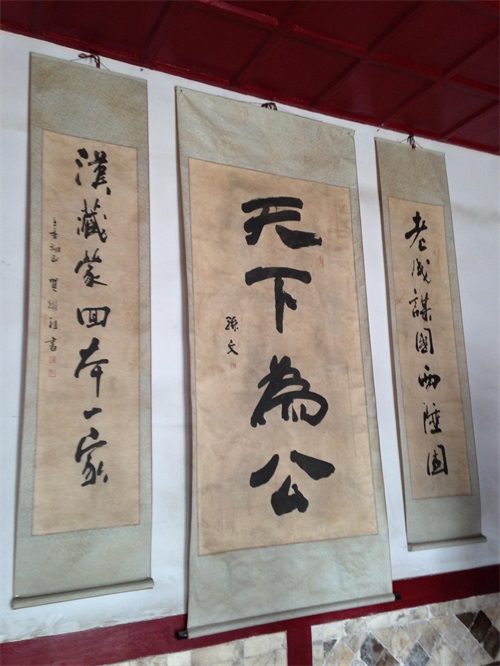 老成謀國西陲固
天下為公
孫文
漢藏蒙回本一家